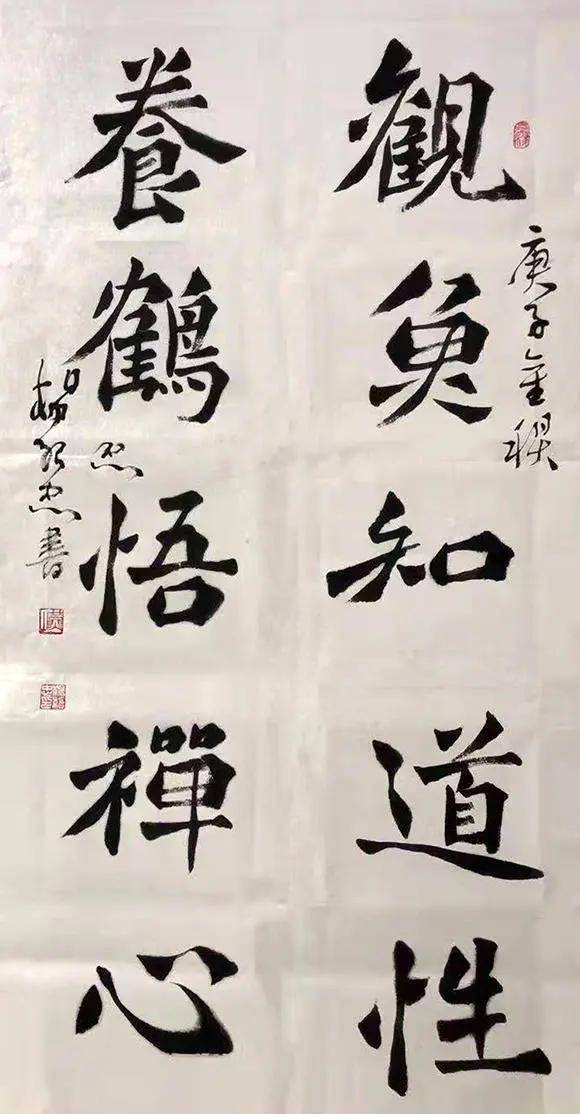 觀魚知道性
養鶴悟禪心
庚子金秋
楊忠書